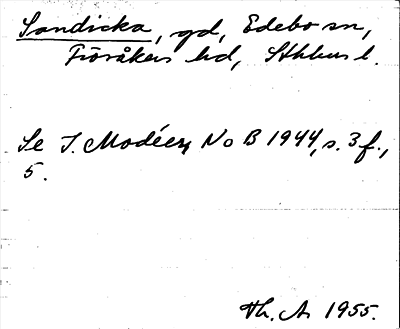 Sandicka, gd, Edebo sn,
Fröråkers hd, Sthlms l.
Se I. Modéer, NoB 1944, s. 3 f.,
5.
Th. A. 1955.